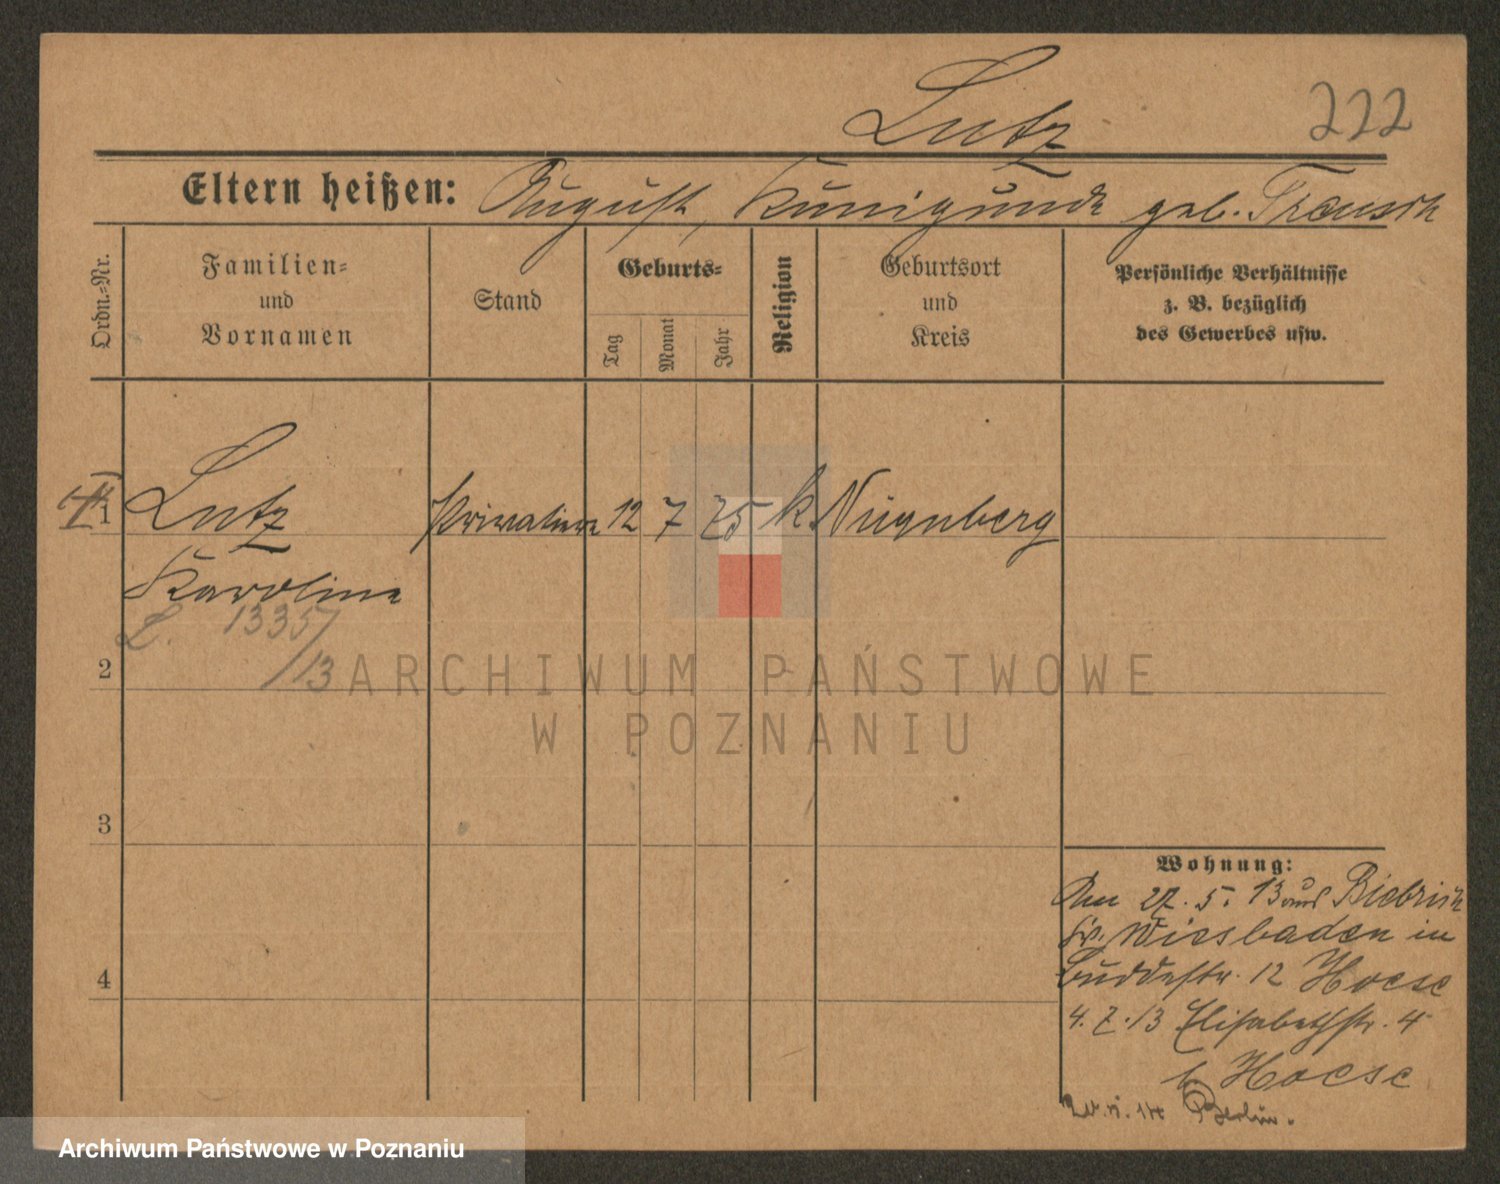 Lutz
222
Eltern heißen: August, Kunigunde geb. Trausch
Ordn.-Nr.
Familien-
und
Vornamen
Stand
Geburts-
Tag
Monat
Jahr
Religion
Geburtsort
und
Kreis
Persönliche Verhältnisse
z. B. bezüglich
des Gewerbes usw.
1
Lutz
Privatiere
12
7
75
k.
Nürnberg
Karoline
L. 1335/
/13
2
ARCHIWUM PAŃSTWOWE
W POZNANIU
3
4
Wohnung:
Am 27. 5. 13 aus Biebrich
Kr. Wiesbaden in
Buddestr. 12 Hoese
4. 7. 13 Elisabethstr. 4
b. Hoese
Berlin.
Archiwum Państwowe w Poznaniu